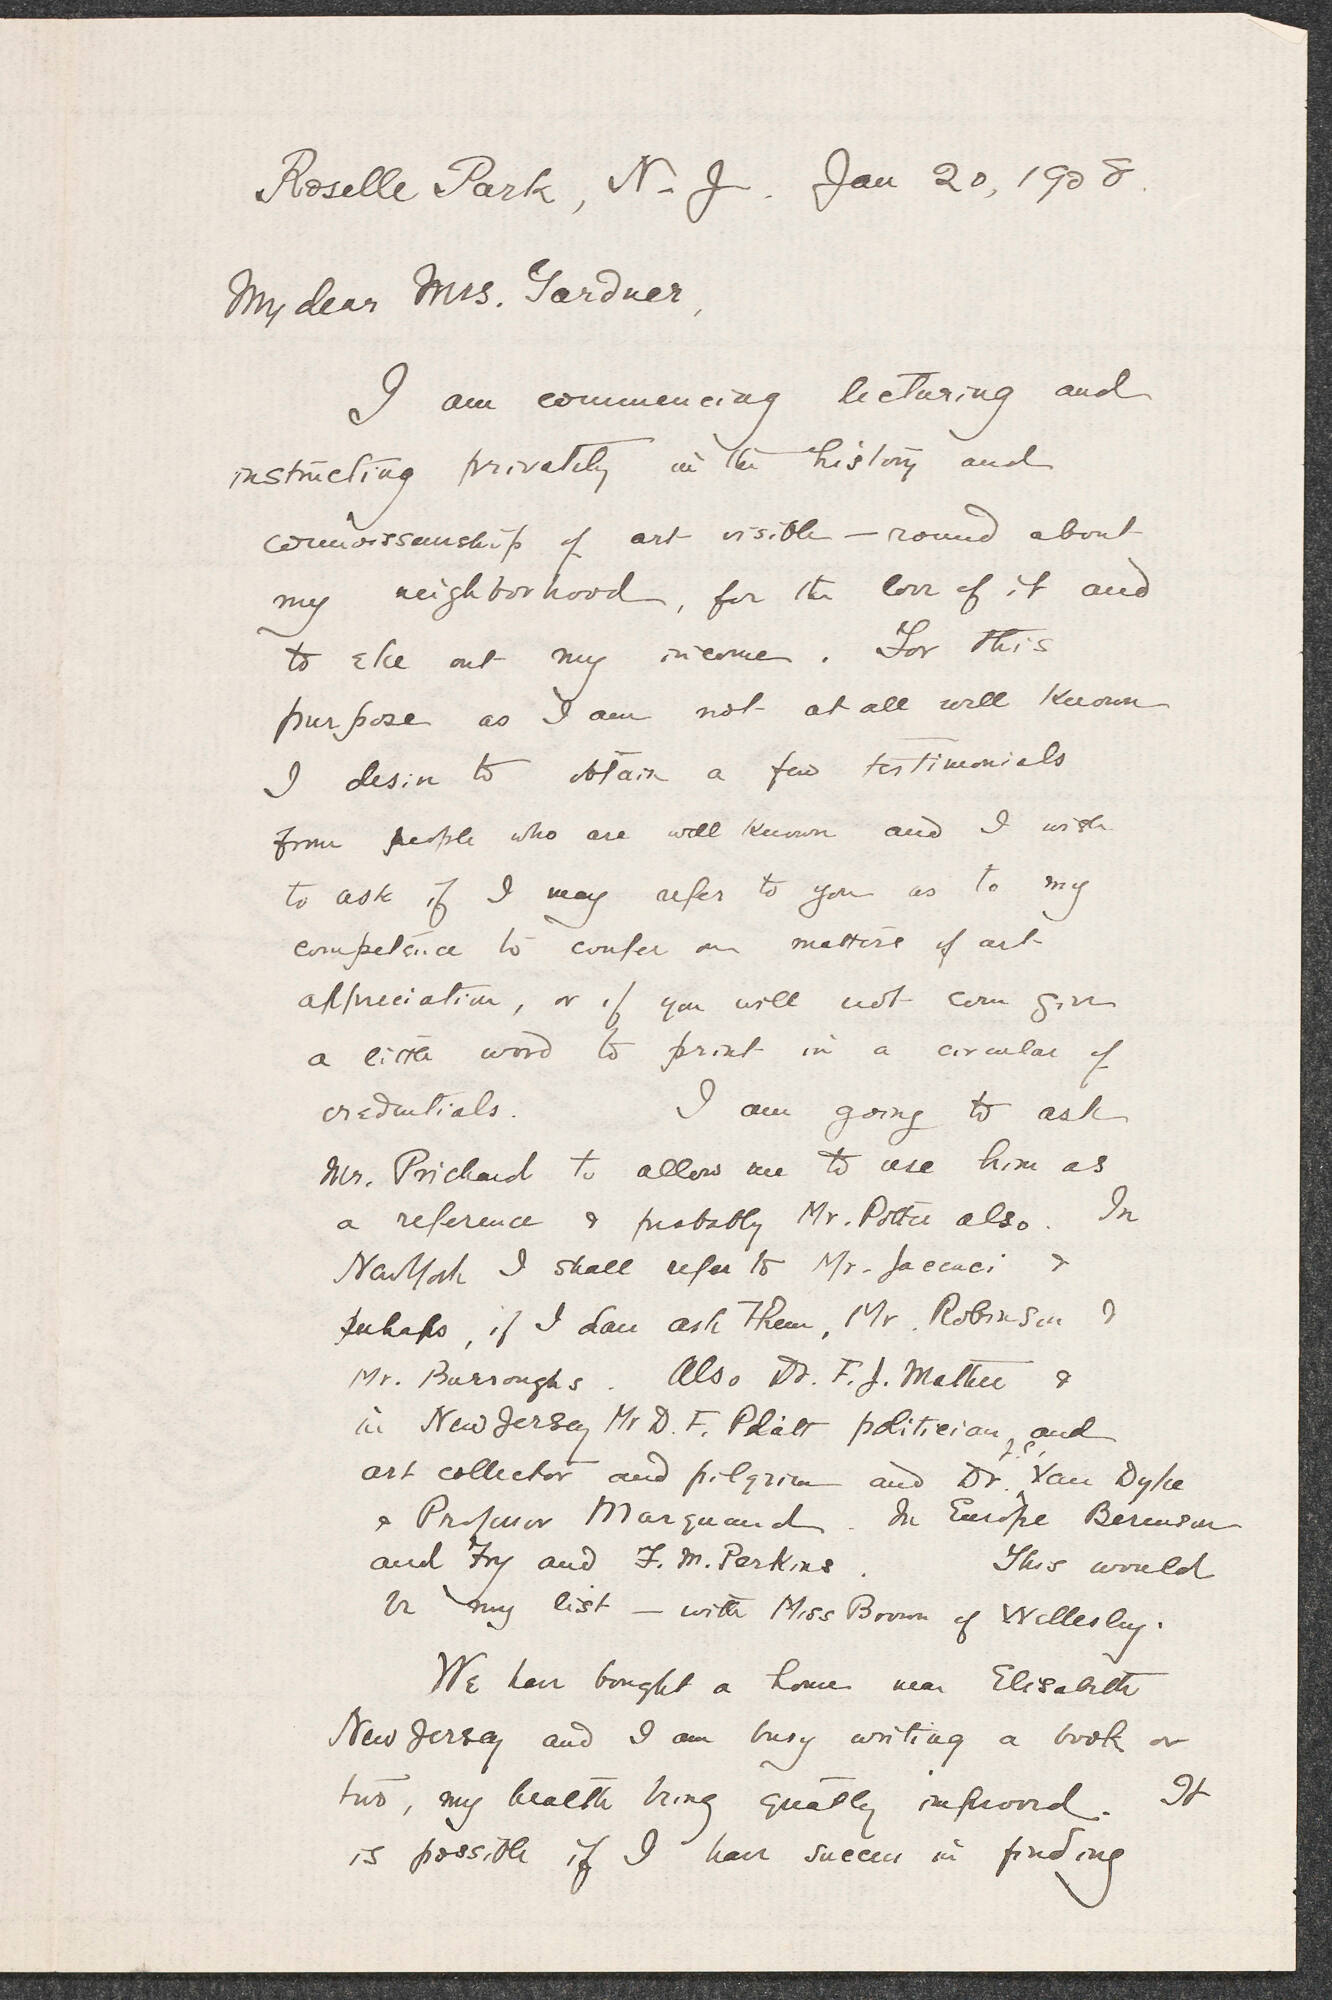 Roselle Park, N. J. Jan 20, 1908.
My dear Mrs. Gardner,
I am commencing lecturing and
instructing privately in the history and
connoisseurship of art visible — round about
my neighborhood, for the love of it and
to eke out my income. For this
purpose as I am not at all well known
I desire to obtain a few testimonials
from people who are well known and I wish
to ask if I may refer to you as to my
competence to confer on matters of art
appreciation, or if you will not even give
a little word to print in a circular of
credentials. I am going to ask
Mr. Prichard to allow me to use him as
a reference & probably Mr. Potter also. In
New York I shall refer to Mr. Jaccaci &
perhaps, if I dare ask them, Mr. Robinson &
Mr. Burroughs. Also Dr. F. J. Mather &
in New Jersey Mr D. F. Platt politician and
art collector and pilgrim and Dr. J. C. Van Dyke
& Professor Marquand. In Europe Berenson
and Fry and F. M. Perkins. This would
be my list — with Miss Brown of Wellesley.
We have bought a home near Elisabeth
New Jersey and I am busy writing a book or
two, my health being greatly improved. It
is possible if I have success in finding